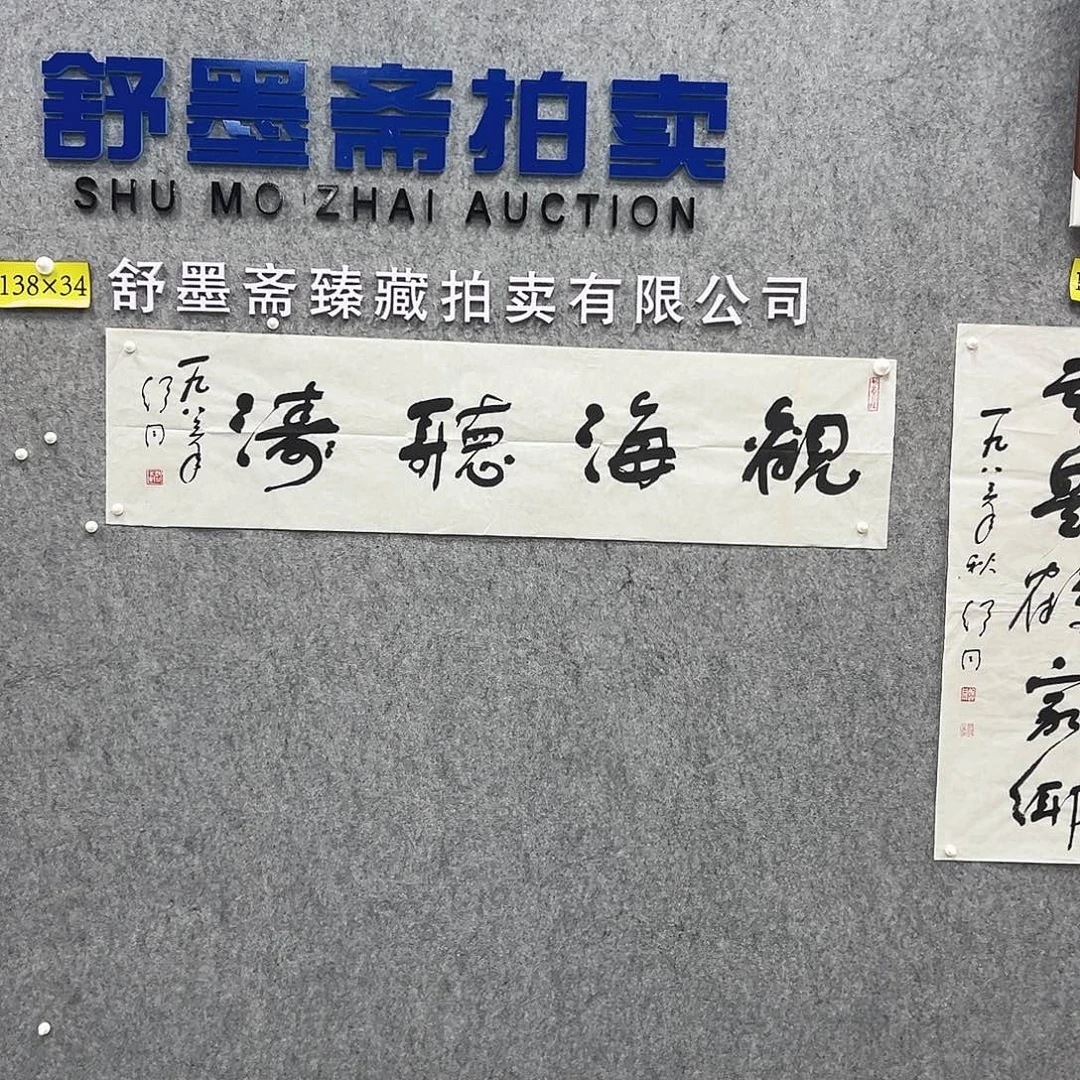 舒墨斋拍卖
SHU MO ZHAI AUCTION
138×34
舒墨斋臻藏拍卖有限公司
觀海聽濤
一九八三年
舒同
一九八三年秋
舒同